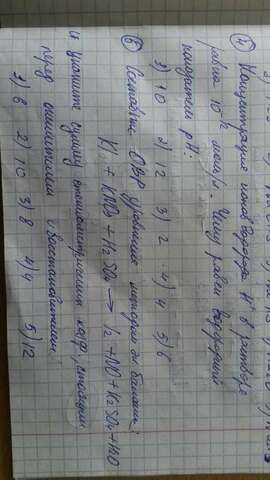 ④ Концентрация ионов водорода H⁺ в растворе
равна 10⁻² моль/л. Чему равен водородный
показатель pH:
1) 10 2) 12 3) 2 4) 4 5) 6
⑥ Составьте ОВР уравнение методом эл баланс;
KI + KNO₃ + H₂SO₄ → I₂ + NO + K₂SO₄ + H₂O
и укажите сумму стехиометрических коэф, стоящих
перед окислителем и восстановителем
1) 6 2) 10 3) 8 4) 4 5) 12